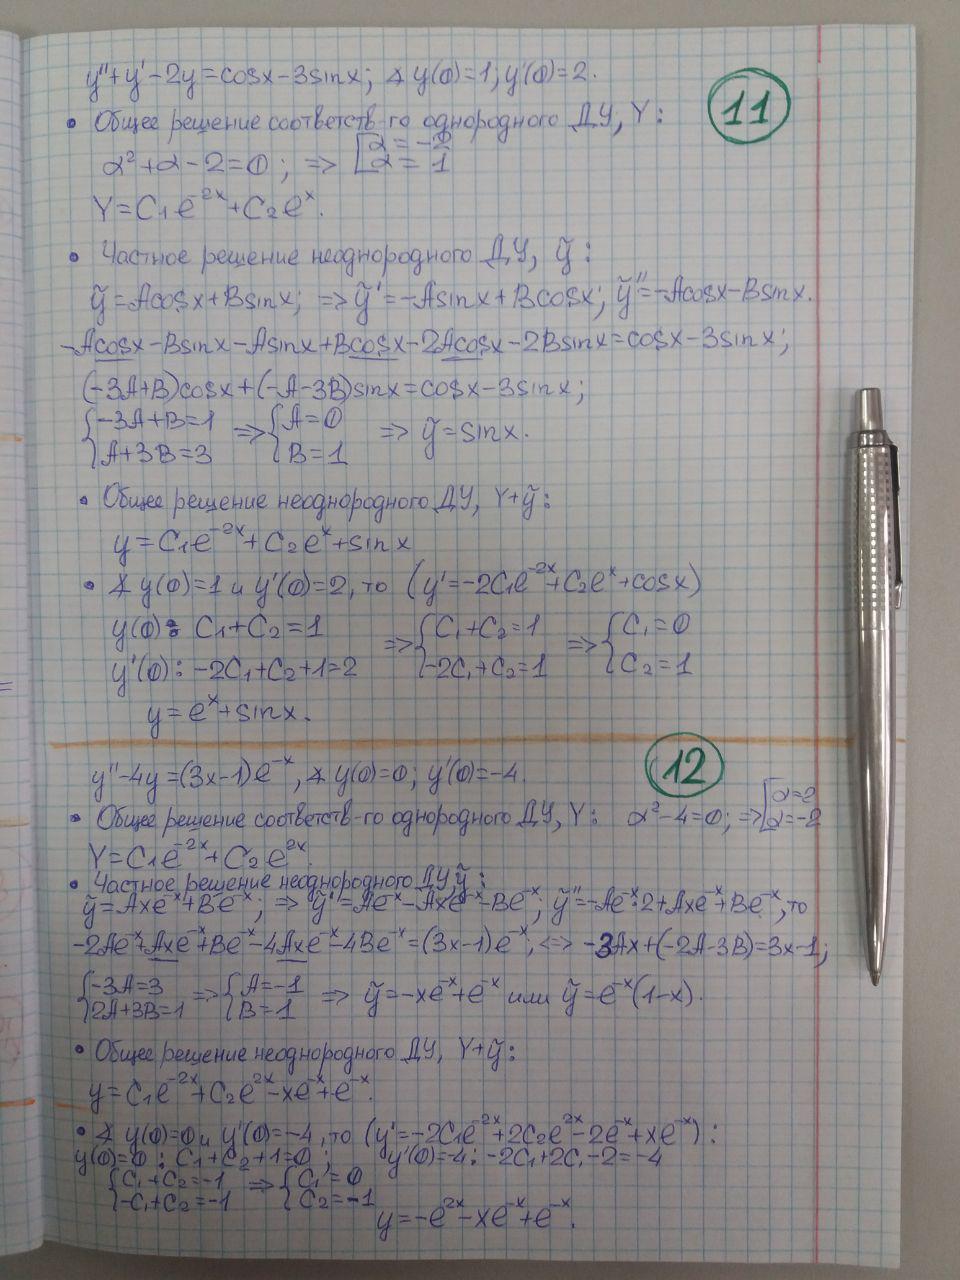 y''+y'-2y=cosx-3sinx; ∢ y(0)=1; y'(0)=2.
11
• Общее решение соответств-го однородного ДУ, Y:
α²+α-2=0; => [α=-2 α=1
Y=C₁e^{-2x}+C₂e^x.
• Частное решение неоднородного ДУ, ỹ:
ỹ=Acosx+Bsinx; => ỹ'=-Asinx+Bcosx; ỹ''=-Acosx-Bsinx.
-Acosx-Bsinx-Asinx+Bcosx-2Acosx-2Bsinx=cosx-3sinx;
(-3A+B)cosx+(-A-3B)sinx=cosx-3sinx;
{-3A+B=1 A+3B=3 => {A=0 B=1 => ỹ=sinx.
• Общее решение неоднородного ДУ, Y+ỹ:
y=C₁e^{-2x}+C₂e^x+sinx
• ∢ y(0)=1 и y'(0)=2, то (y'=-2C₁e^{-2x}+C₂e^x+cosx)
y(0): C₁+C₂=1
y'(0): -2C₁+C₂+1=2 => {C₁+C₂=1 -2C₁+C₂=1 => {C₁=0 C₂=1
y=e^x+sinx.
12
y''-4y=(3x-1)e^{-x}, ∢ y(0)=0; y'(0)=-4.
• Общее решение соответств-го однородного ДУ, Y: α²-4=0; => [α=2 α=-2
Y=C₁e^{-2x}+C₂e^{2x}.
• Частное решение неоднородного ДУ, ỹ:
ỹ=Axe^{-x}+Be^{-x}; => ỹ'=Ae^{-x}-Axe^{-x}-Be^{-x}; ỹ''=-Ae^{-x}·2+Axe^{-x}+Be^{-x}, то
-2Ae^{-x}+Axe^{-x}+Be^{-x}-4Axe^{-x}-4Be^{-x}=(3x-1)e^{-x}; <=> -3Ax+(-2A-3B)=3x-1;
{-3A=3 2A+3B=1 => {A=-1 B=1 => ỹ=-xe^{-x}+e^{-x} или ỹ=e^{-x}(1-x).
• Общее решение неоднородного ДУ, Y+ỹ:
y=C₁e^{-2x}+C₂e^{2x}-xe^{-x}+e^{-x}.
• ∢ y(0)=0 и y'(0)=-4, то (y'=-2C₁e^{-2x}+2C₂e^{2x}-2e^{-x}+xe^{-x}):
y(0)=0: C₁+C₂+1=0; y'(0)=-4: -2C₁+2C₁-2=-4
{C₁+C₂=-1 -C₁+C₂=-1 => {C₁=0 C₂=-1
y=-e^{2x}-xe^{-x}+e^{-x}.